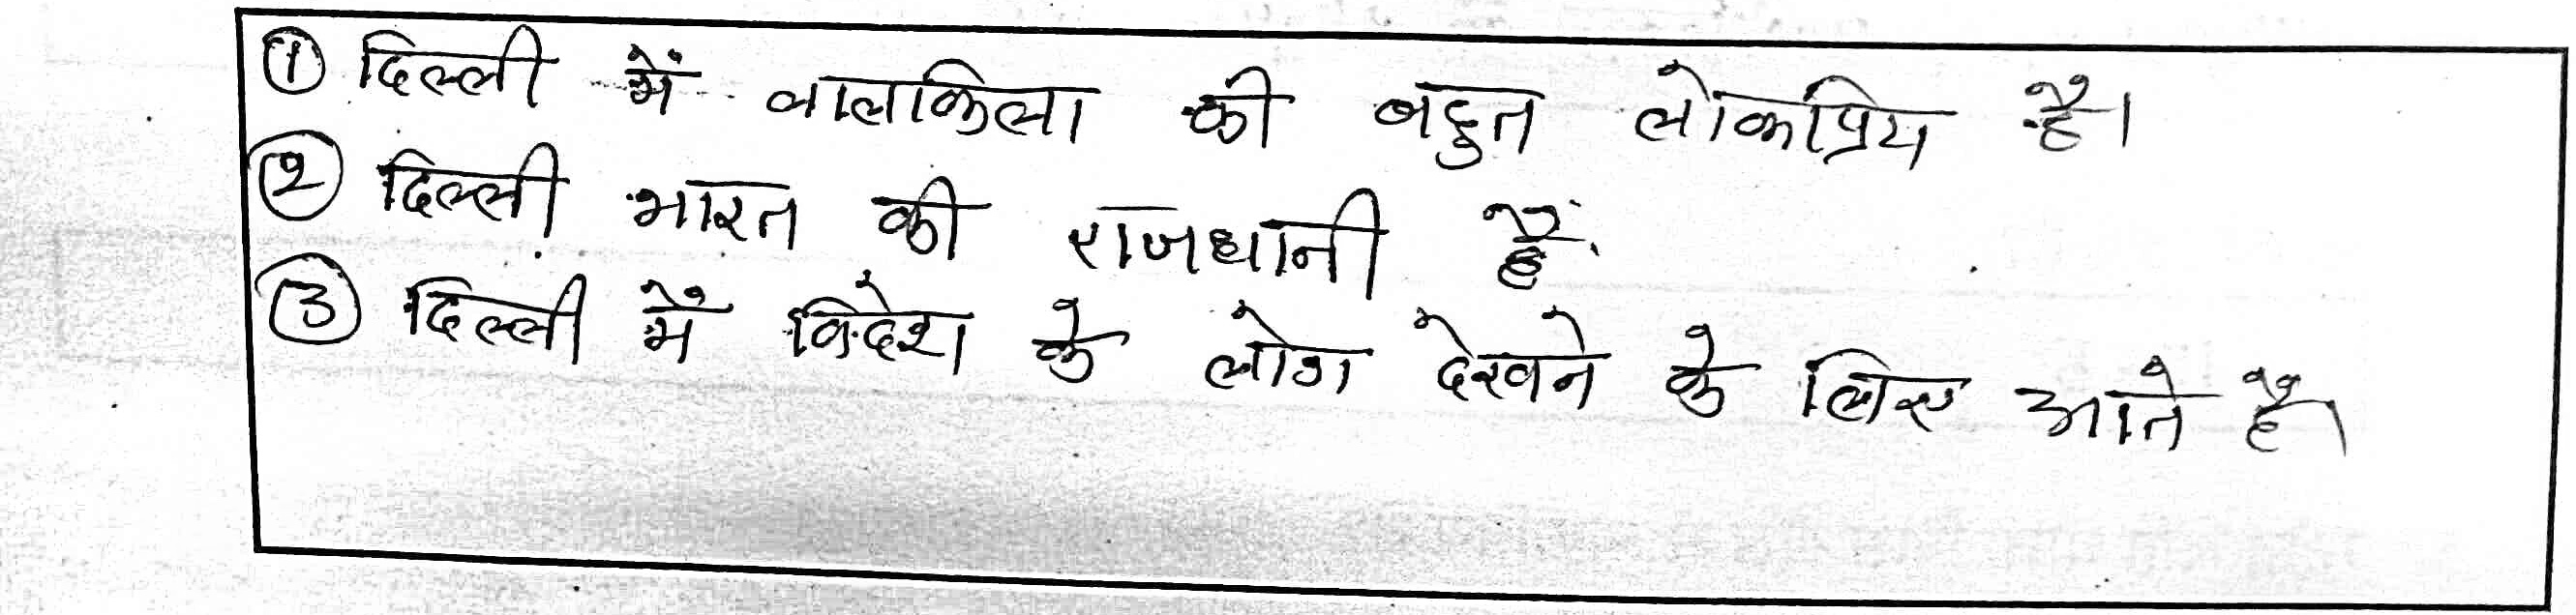 ① दिल्ली में लालकिला की बहुत लोकप्रिय है।
② दिल्ली भारत की राजधानी हैं
③ दिल्ली में विदेश के लोग देखने के लिए आते है।